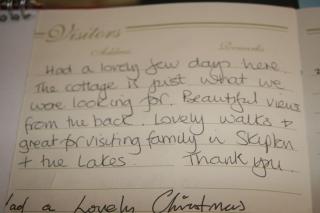 Visitors
Address Remarks
Had a lovely few days here.
The cottage is just what we
were looking for. Beautiful views
from the back. Lovely walks +
great for visiting family in Skipton
+ the Lakes. Thank you.
Had a Lovely Christmas